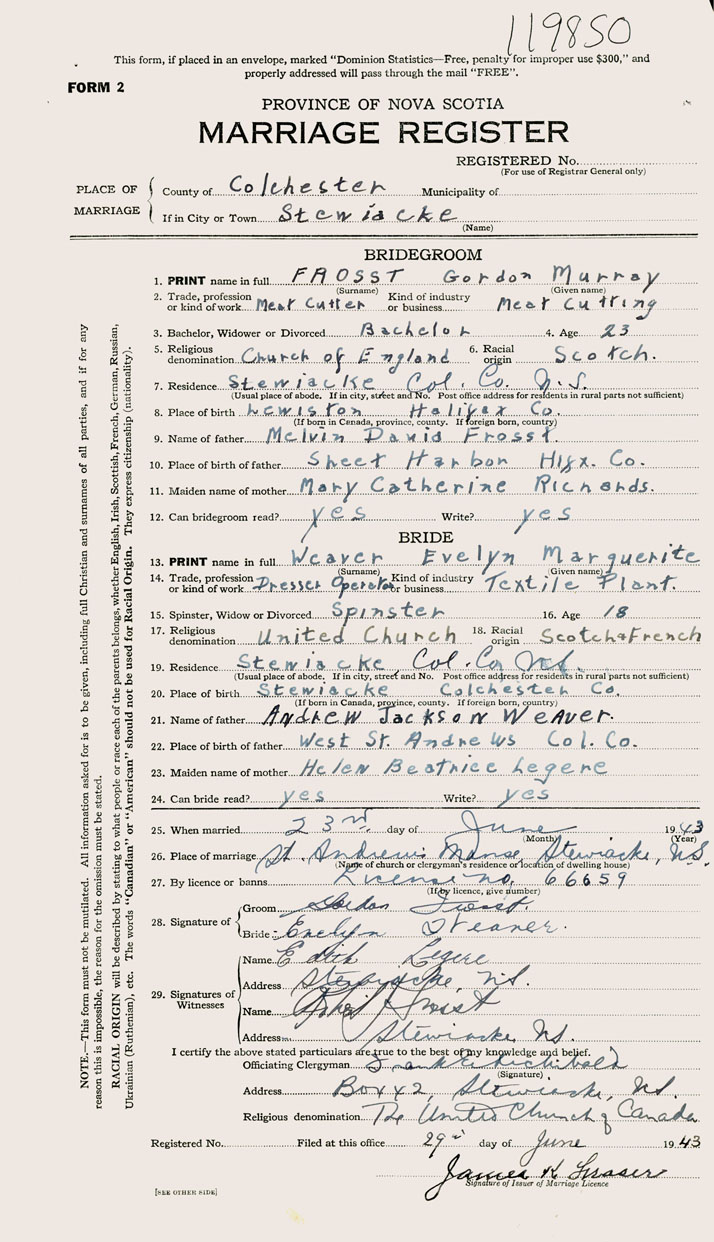 119850
This form, if placed in an envelope, marked "Dominion Statistics—Free, penalty for improper use $300," and
properly addressed will pass through the mail "FREE".
FORM 2
PROVINCE OF NOVA SCOTIA
MARRIAGE REGISTER
REGISTERED No.
(For use of Registrar General only)
PLACE OF MARRIAGE
County of Colchester Municipality of
If in City or Town Stewiacke
(Name)
BRIDEGROOM
1. PRINT name in full FROSST Gordon Murray
(Surname) (Given name)
2. Trade, profession or kind of work Meat Cutter Kind of industry or business Meat Cutting
3. Bachelor, Widower or Divorced Bachelor 4. Age 23
5. Religious denomination Church of England 6. Racial origin Scotch.
7. Residence Stewiacke Col. Co. N.S.
(Usual place of abode. If in city, street and No. Post office address for residents in rural parts not sufficient)
8. Place of birth Lewiston Halifax Co.
(If born in Canada, province, county. If foreign born, country)
9. Name of father Melvin David Frosst.
10. Place of birth of father Sheet Harbor Hlfx. Co.
11. Maiden name of mother Mary Catherine Richards.
12. Can bridegroom read? yes Write? yes
BRIDE
13. PRINT name in full Weaver Evelyn Marguerite
(Surname) (Given name)
14. Trade, profession or kind of work Dresser Operator Kind of industry or business Textile Plant.
15. Spinster, Widow or Divorced Spinster 16. Age 18
17. Religious denomination United Church 18. Racial origin Scotch & French
19. Residence Stewiacke Col. Co. N.S.
(Usual place of abode. If in city, street and No. Post office address for residents in rural parts not sufficient)
20. Place of birth Stewiacke Colchester Co.
(If born in Canada, province, county. If foreign born, country)
21. Name of father Andrew Jackson Weaver.
22. Place of birth of father West St. Andrews Col. Co.
23. Maiden name of mother Helen Beatrice Legere
24. Can bride read? yes Write? yes
25. When married 23rd day of June 1943
(Month) (Year)
26. Place of marriage St. Andrew's Manse, Stewiacke, N.S.
(Name of church or clergyman's residence or location of dwelling house)
27. By licence or banns License no. 66659
(If by licence, give number)
28. Signature of
Groom Gordon Frosst.
Bride Evelyn Weaver.
29. Signatures of Witnesses
Name Edith Legere
Address Stewiacke, N.S.
Name Frosst
Address Stewiacke N.S.
I certify the above stated particulars are true to the best of my knowledge and belief.
Officiating Clergyman Frank E. Archibald
(Signature)
Address Box 42, Stewiacke, N.S.
Religious denomination The United Church of Canada
Registered No. Filed at this office 29th day of June 1943
James K Fraser
Signature of Issuer of Marriage Licence
[SEE OTHER SIDE]
NOTE.—This form must not be mutilated. All information asked for is to be given, including full Christian and surnames of all parties, and if for any
reason this is impossible, the reason for the omission must be stated.
RACIAL ORIGIN will be described by stating to what people or race each of the parents belongs, whether English, Irish, Scottish, French, German, Russian,
Ukrainian (Ruthenian), etc. The words "Canadian" or "American" should not be used for Racial Origin. They express citizenship (nationality).